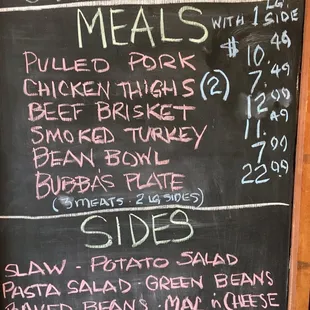 MEALS WITH 1 LG. SIDE
PULLED PORK $10.49
CHICKEN THIGHS (2) 7.49
BEEF BRISKET 12.99
SMOKED TURKEY 11.49
BEAN BOWL 7.99
BUBBA'S PLATE 22.99
(3 MEATS - 2 LG SIDES)
SIDES
SLAW - POTATO SALAD
PASTA SALAD - GREEN BEANS
BAKED BEANS - MAC n CHEESE